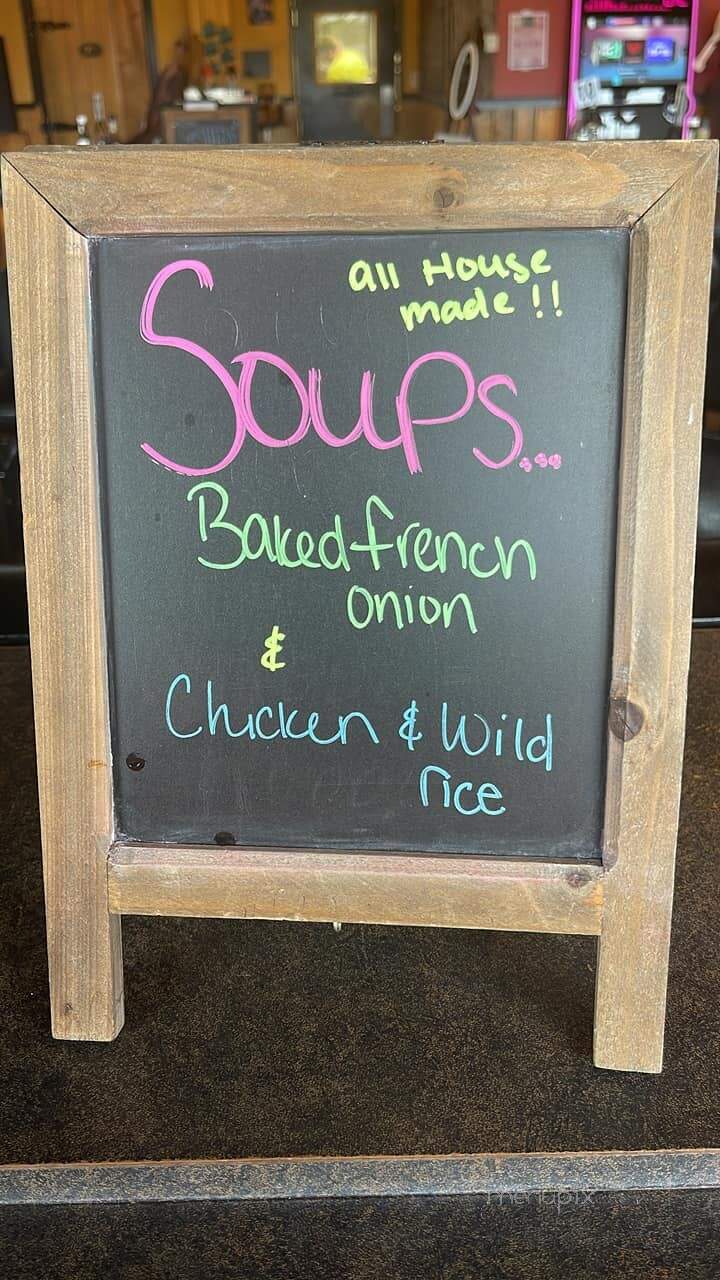 all House
made !!
Soups...
Baked french
onion
&
Chicken & Wild
rice